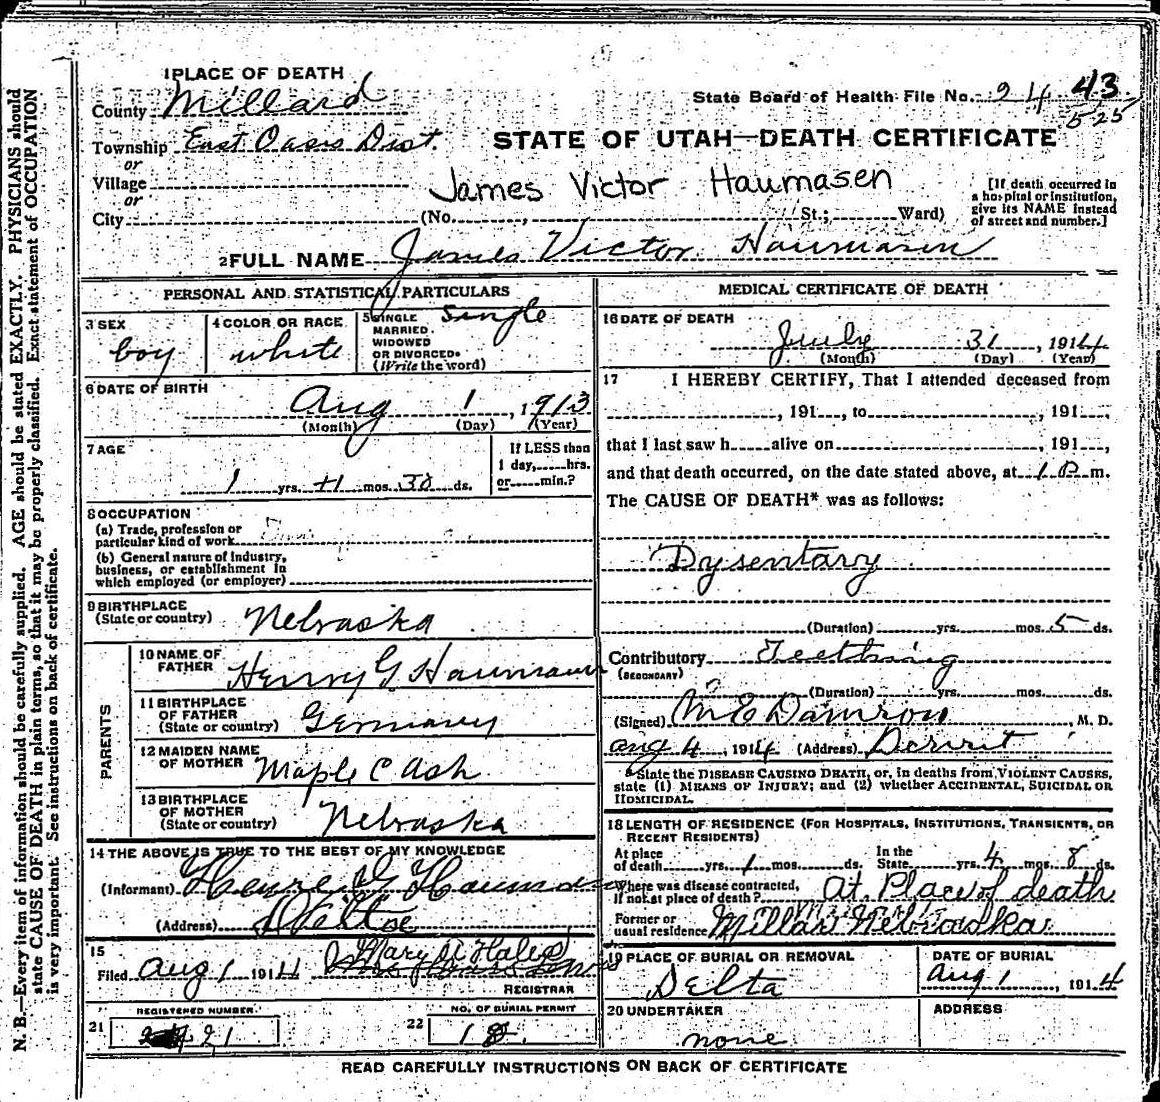 1 PLACE OF DEATH
County Millard
State Board of Health File No. 24 43
525
Township East Oasis Dist.
STATE OF UTAH—DEATH CERTIFICATE
or
Village
or
James Victor Haumasen
City (No. , St.; Ward)
[If death occurred in a hospital or institution, give its NAME instead of street and number.]
2 FULL NAME James Victor Haumasen
PERSONAL AND STATISTICAL PARTICULARS
3 SEX boy
4 COLOR OR RACE white
5 SINGLE MARRIED. WIDOWED OR DIVORCED. (Write the word) Single
6 DATE OF BIRTH
Aug 1, 1913
(Month) (Day) (Year)
7 AGE
If LESS than 1 day, hrs. or min.?
1 yrs. 11 mos. 30 ds.
8 OCCUPATION
(a) Trade, profession or particular kind of work
(b) General nature of industry, business, or establishment in which employed (or employer)
9 BIRTHPLACE (State or country) Nebraska
PARENTS
10 NAME OF FATHER Henry G. Haumann
11 BIRTHPLACE OF FATHER (State or country) Germany
12 MAIDEN NAME OF MOTHER Maple C Ash
13 BIRTHPLACE OF MOTHER (State or country) Nebraska
14 THE ABOVE IS TRUE TO THE BEST OF MY KNOWLEDGE
(Informant)
(Address)
15
Filed Aug 1 1914 Mary A Hales
REGISTRAR
21 REGISTERED NUMBER 21
22 NO. OF BURIAL PERMIT 18.
MEDICAL CERTIFICATE OF DEATH
16 DATE OF DEATH
July 31, 1914
(Month) (Day) (Year)
17 I HEREBY CERTIFY, That I attended deceased from
, 191 , to , 191 ,
that I last saw h alive on , 191 ,
and that death occurred, on the date stated above, at 1 P m.
The CAUSE OF DEATH* was as follows:
Dysentary
(Duration) yrs. mos. 5 ds.
Contributory Teething
(SECONDARY)
(Duration) yrs. mos. ds.
(Signed) M E Damron, M. D.
Aug 4, 1914 (Address)
*State the DISEASE CAUSING DEATH, or, in deaths from VIOLENT CAUSES, state (1) MEANS OF INJURY; and (2) whether ACCIDENTAL, SUICIDAL OR HOMICIDAL.
18 LENGTH OF RESIDENCE (FOR HOSPITALS, INSTITUTIONS, TRANSIENTS, OR RECENT RESIDENTS)
At place of death yrs. 1 mos. ds. In the State yrs. 4 mos 8 ds.
Where was disease contracted, if not at place of death? At Place of death
Former or usual residence Millard Nebraska
19 PLACE OF BURIAL OR REMOVAL
Delta
DATE OF BURIAL
Aug 1, 1914
20 UNDERTAKER
none
ADDRESS
READ CAREFULLY INSTRUCTIONS ON BACK OF CERTIFICATE
N. B.—Every item of information should be carefully supplied. AGE should be stated EXACTLY. PHYSICIANS should
state CAUSE OF DEATH in plain terms, so that it may be properly classified. Exact statement of OCCUPATION
is very important. See instructions on back of certificate.